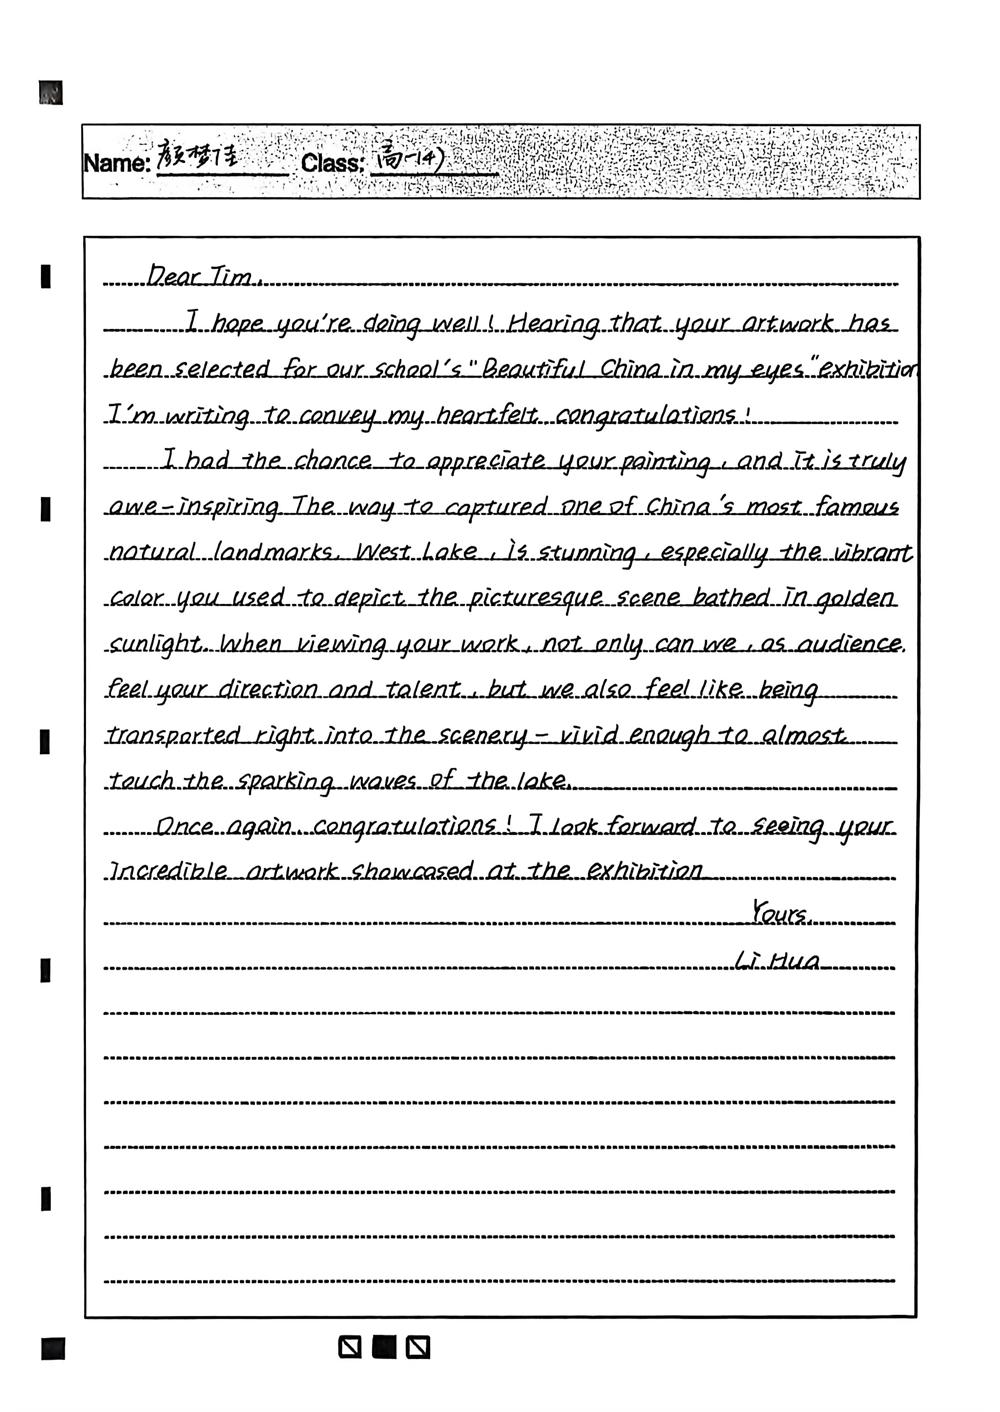 Name: 颜梦佳 Class: 高一14)
Dear Tim,
I hope you're doing well! Hearing that your artwork has
been selected for our school's "Beautiful China in my eyes" exhibition
I'm writing to convey my heartfelt congratulations!
I had the chance to appreciate your painting, and it is truly
awe-inspiring. The way to captured one of China's most famous
natural landmarks, West Lake, is stunning, especially the vibrant
color you used to depict the picturesque scene bathed in golden
sunlight. When viewing your work, not only can we, as audience,
feel your direction and talent, but we also feel like being
transported right into the scenery - vivid enough to almost
touch the sparking waves of the lake.
Once again, congratulations! I look forward to seeing your
incredible artwork showcased at the exhibition
Yours,
Li Hua